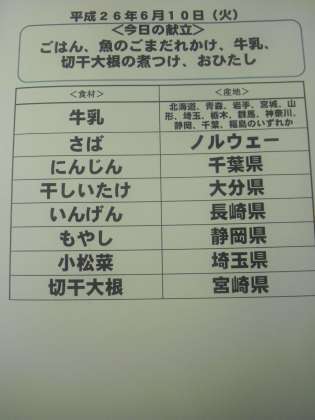 平成２６年６月１０日（火）
＜今日の献立＞
ごはん、魚のごまだれかけ、牛乳、
切干大根の煮つけ、おひたし
＜食材＞ ＜産地＞
牛乳 北海道、青森、岩手、宮城、山
形、埼玉、栃木、群馬、神奈川、
静岡、千葉、福島のいずれか
さば ノルウェー
にんじん 千葉県
干しいたけ 大分県
いんげん 長崎県
もやし 静岡県
小松菜 埼玉県
切干大根 宮崎県